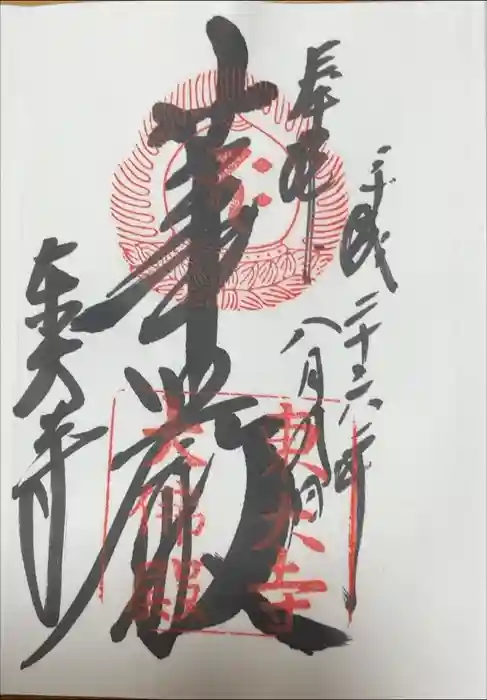 奉拝
平成二十六年
八月九日
華厳
東大寺
東大寺
大佛殿